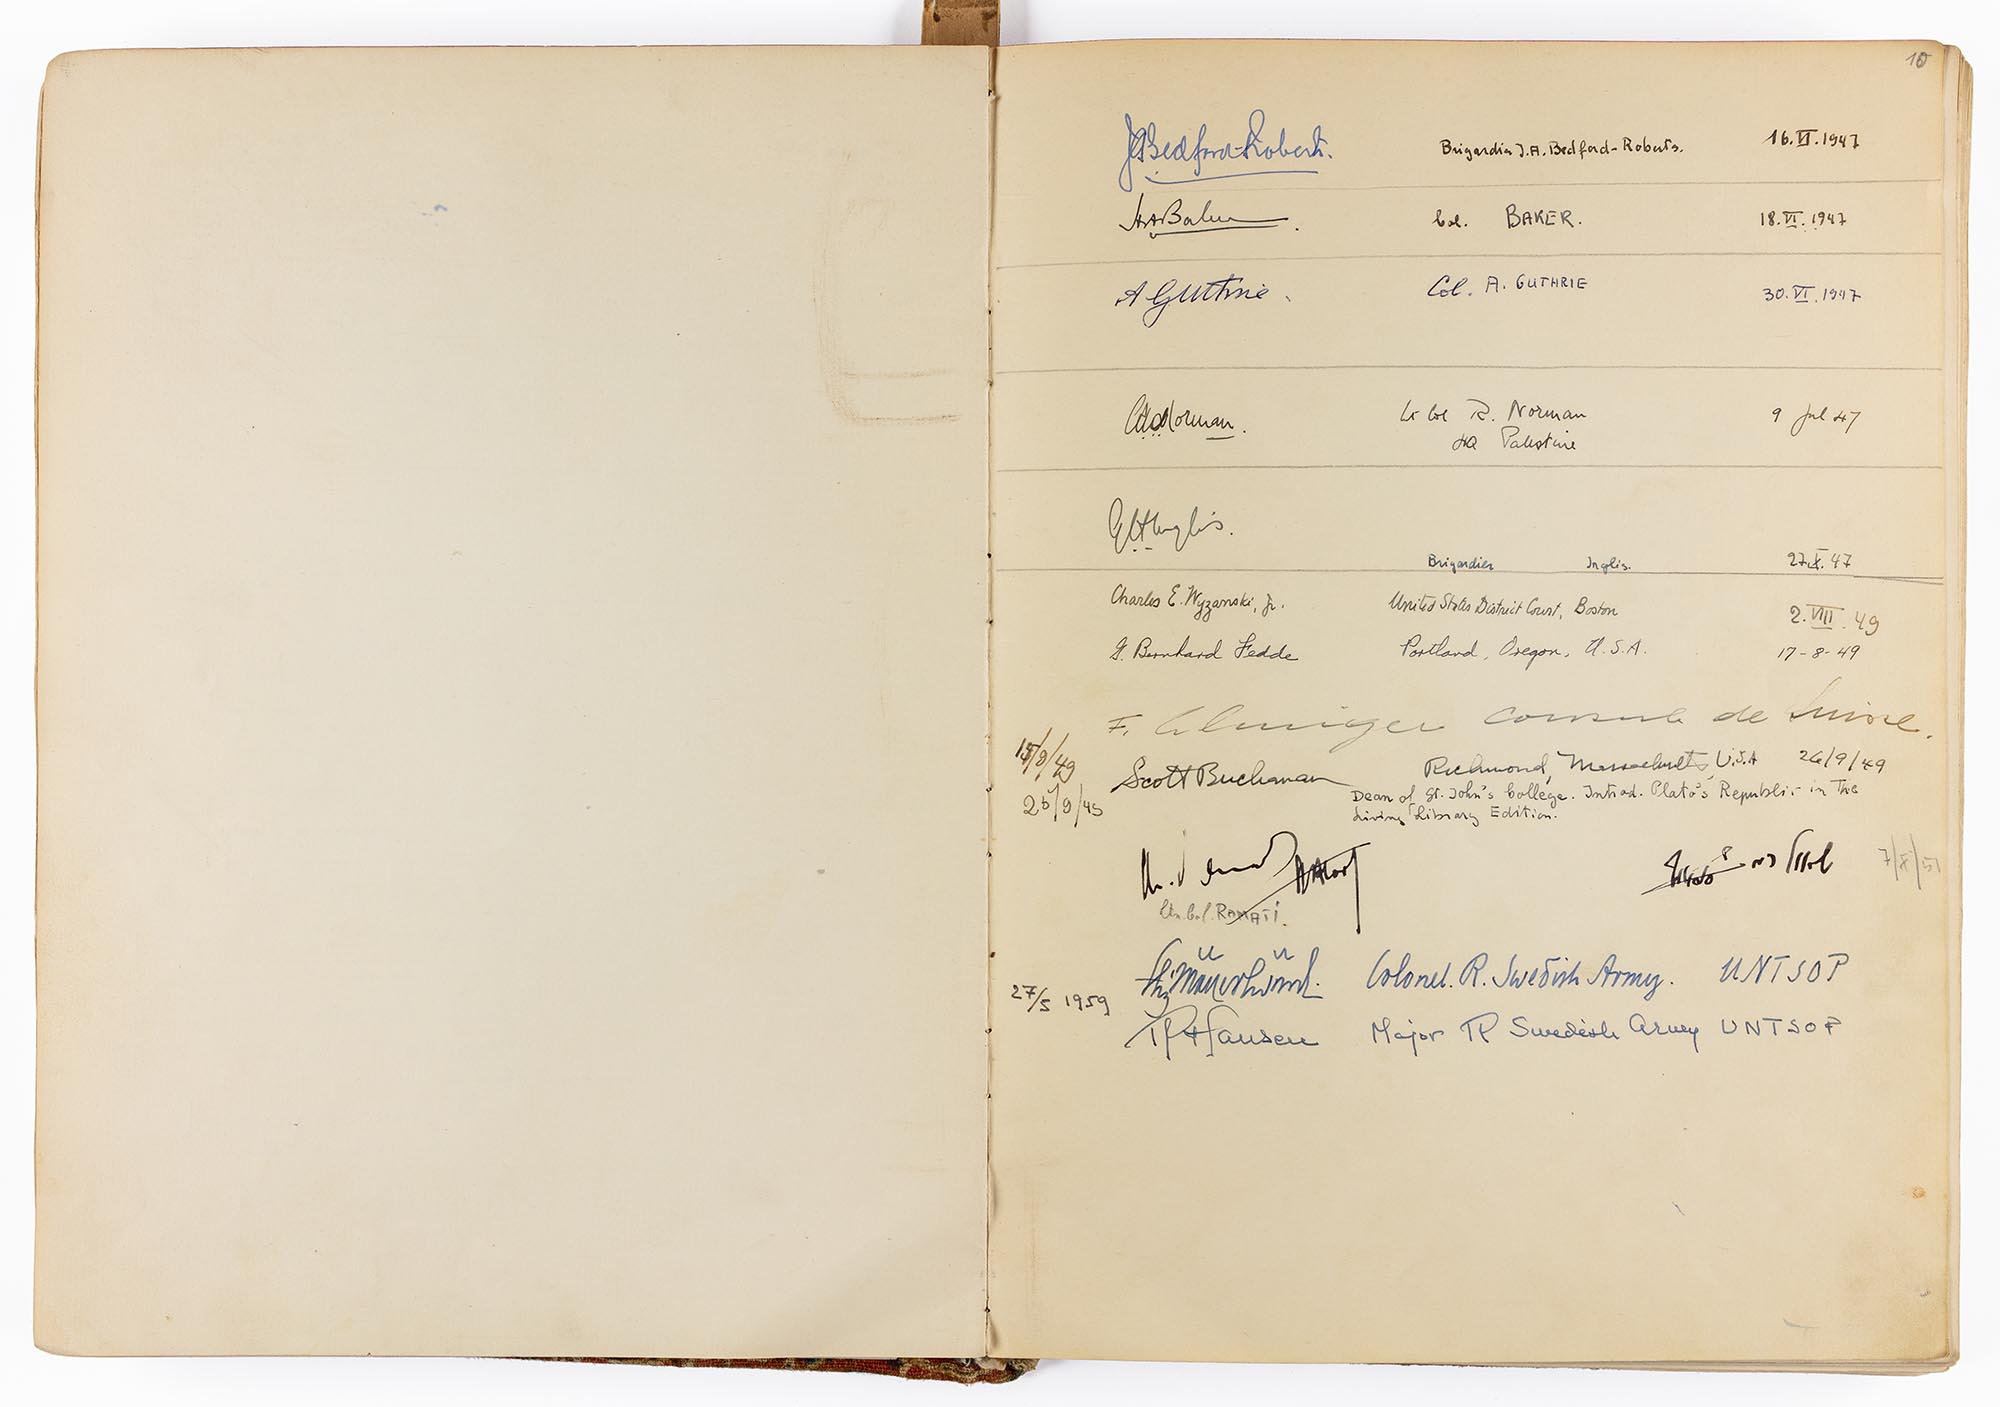 10
JABedford-Roberts. Brigardier J.A. Bedford-Roberts. 16.VI.1947
Baker Col. BAKER. 18.VI.1947
A Guthrie. Col. A. GUTHRIE 30.VI.1947
Norman. Lt Col R. Norman 9 Jul 47
HQ Palestine
Inglis.
Brigardier Inglis. 27.X.47
Charles E. Wyzanski, Jr. United States District Court, Boston 2.VIII.49
G. Bernhard Fedde Portland, Oregon, U.S.A. 17-8-49
F. consule de Suisse.
Scott Buchanan Richmond, Massachusetts, U.S.A 26/9/49
Dean of St. John's College. Introd. Plato's Republic in The
Living Library Edition.
Col. RAMATI.
27/5 1959 Colonel. R. Swedish Army. UNTSOP
Hansen Major R Swedish Army UNTSOP